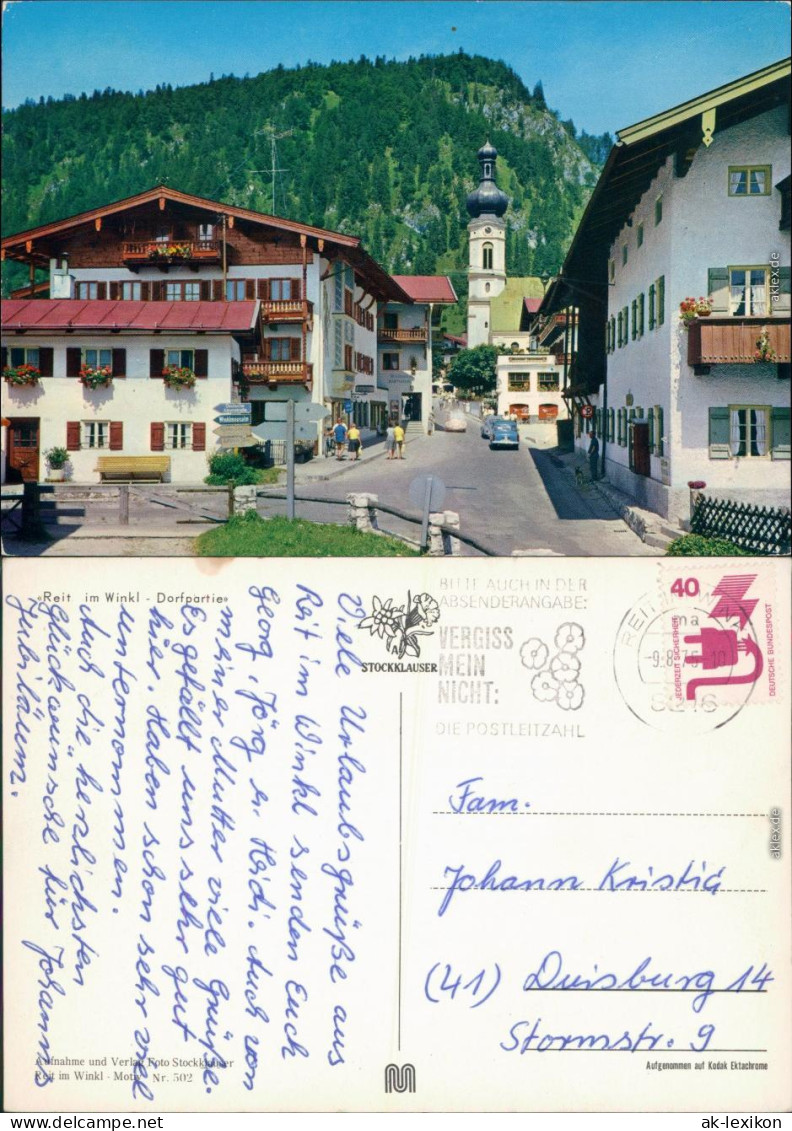 aklex.de
«Reit im Winkl - Dorfpartie»
Viele Urlaubsgrüße aus
Reit im Winkl senden Euch
Georg Jörg u. Heidi. Auch von
meiner Mutter viele Grüße.
Es gefällt uns sehr gut
hie. Haben schon sehr viel
unternommen.
Auch die herzlichsten
Glückwünsche für Johanns
Jubiläum.
Aufnahme und Verlag Foto Stockklauser
Reit im Winkl - Motiv Nr. 502
STOCKKLAUSER
BITTE AUCH IN DER
ABSENDERANGABE:
VERGISS
MEIN
NICHT:
DIE POSTLEITZAHL
REIT IM WINKL
ma
-9.8.75-10
8216
40
JEDERZEIT SICHERHEIT
DEUTSCHE BUNDESPOST
Fam.
Johann Kristia
(41) Duisburg 14
Stormstr. 9
Aufgenommen auf Kodak Ektachrome
aklex.de
ak-lexikon